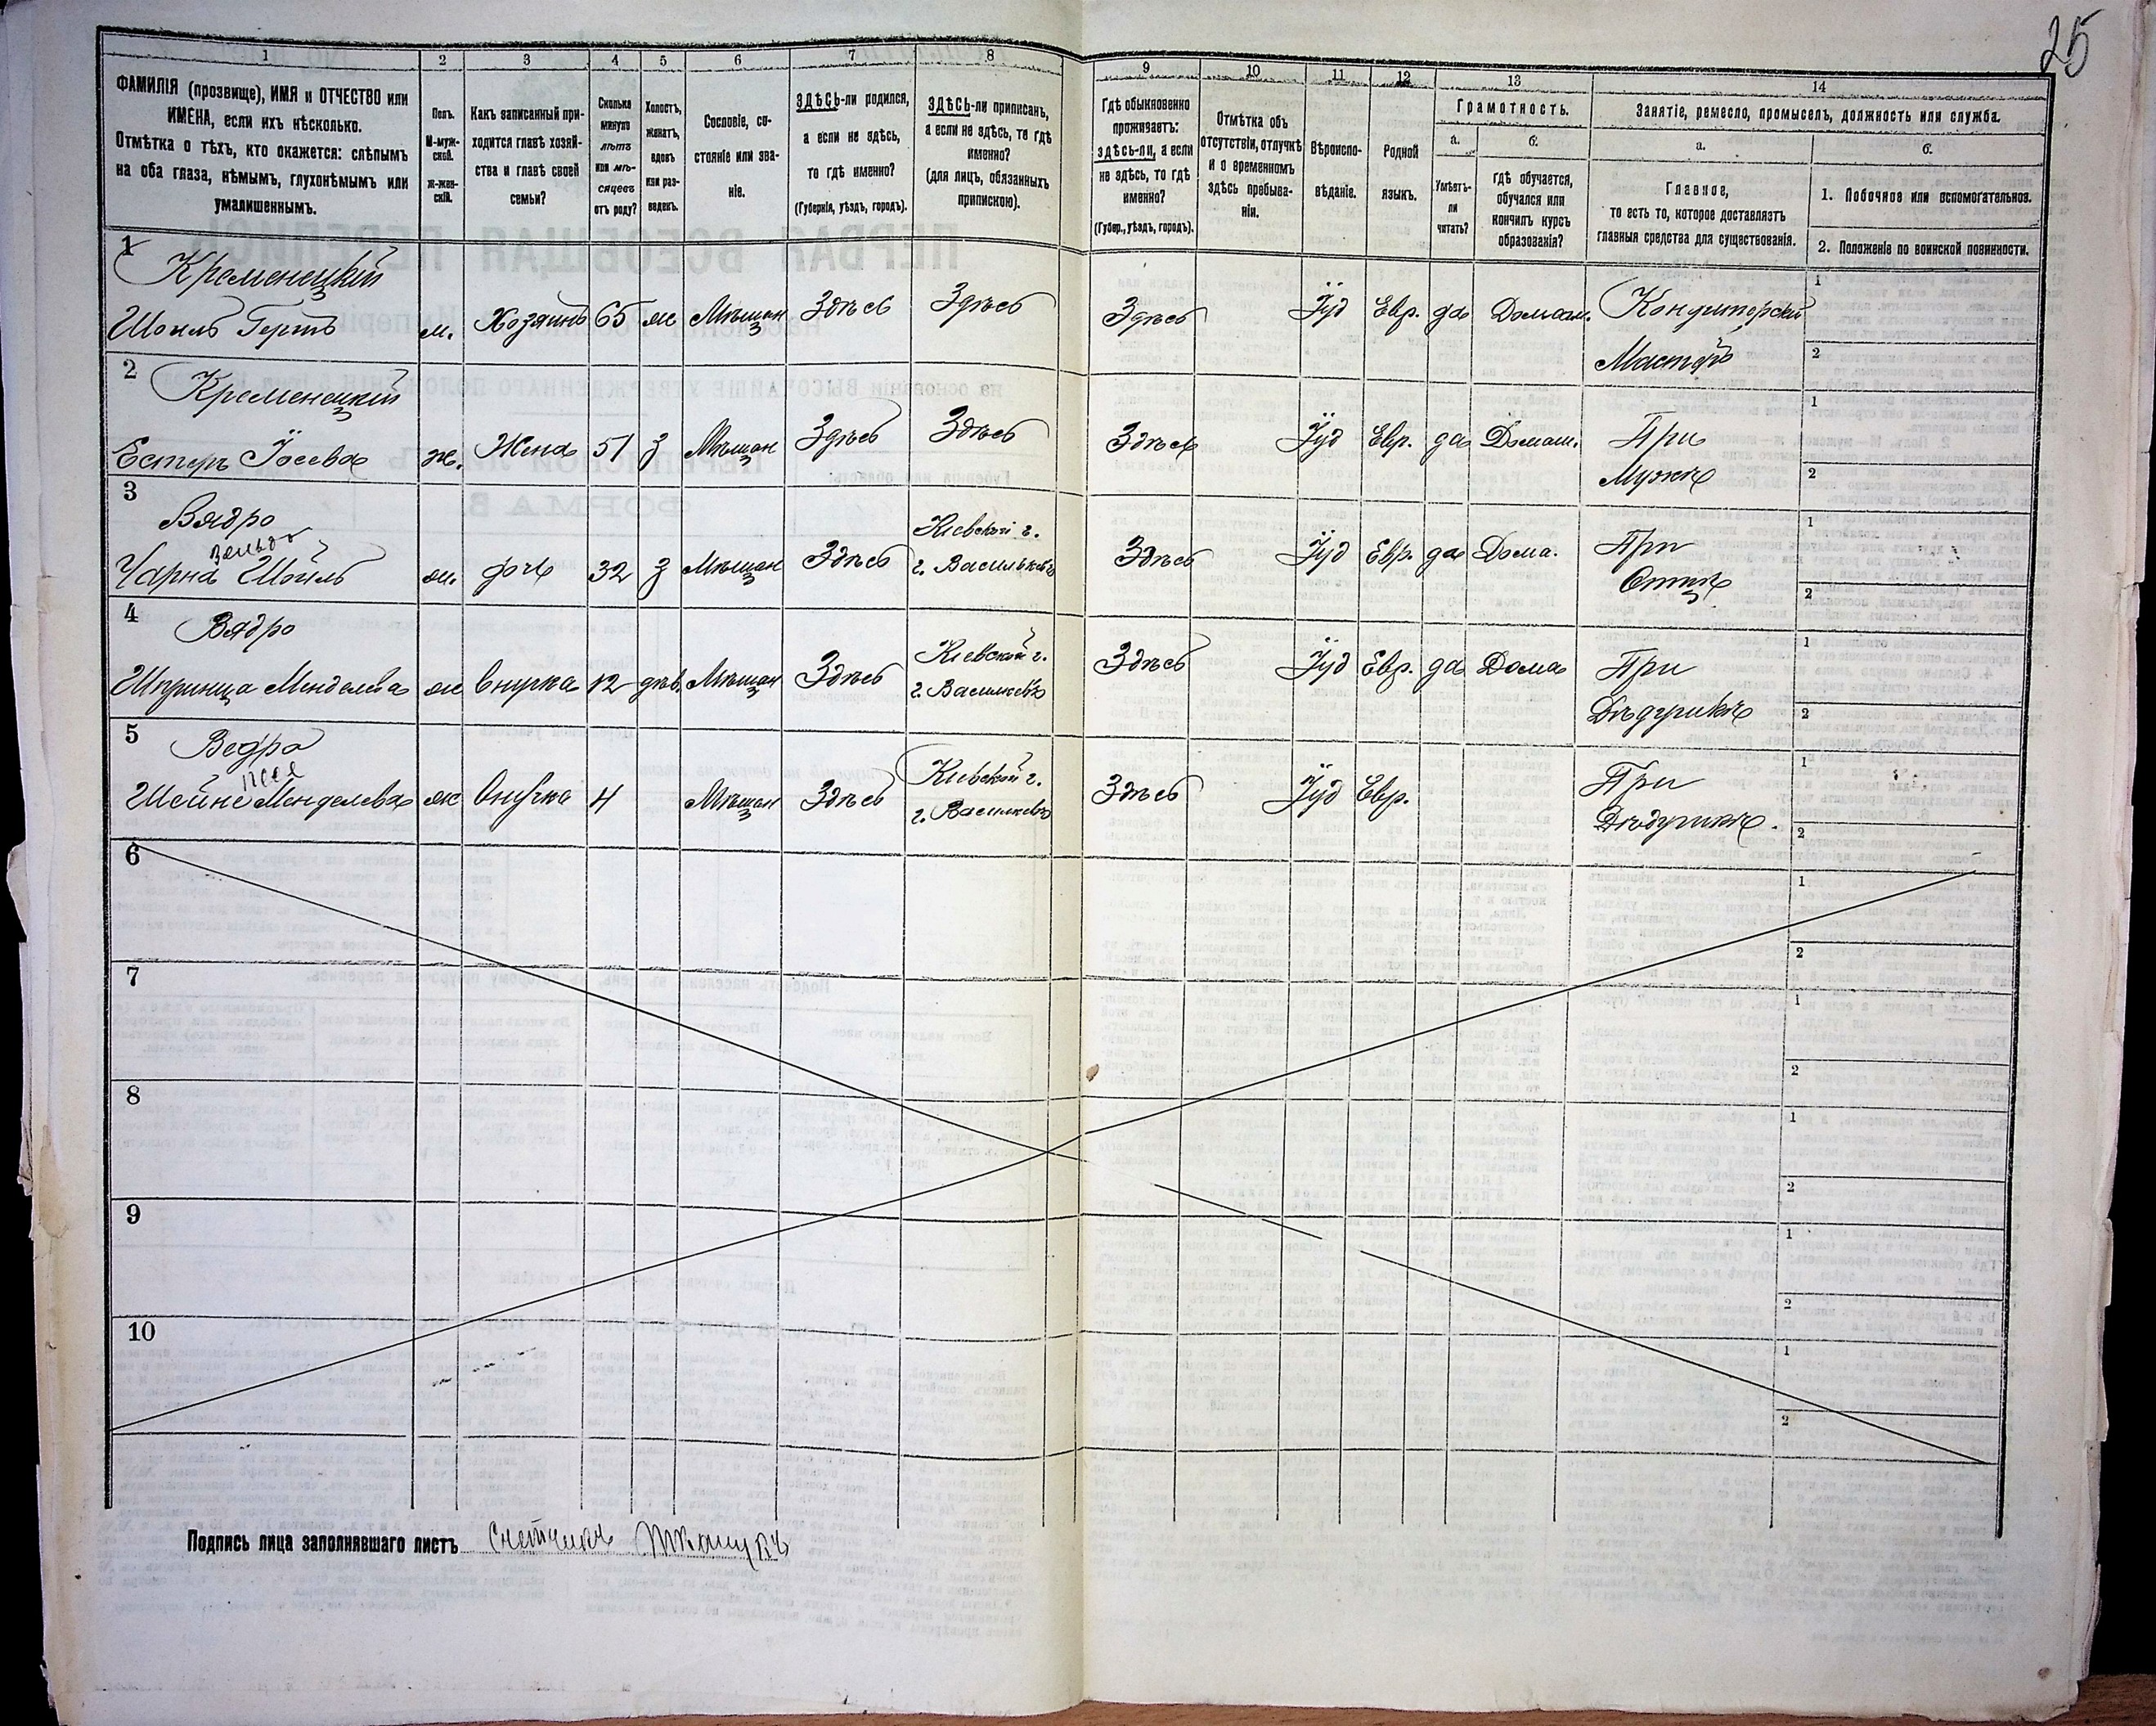 25
1 2 3 4 5 6 7 8 9 10 11 12 13 14
ФАМИЛІЯ (прозвище), ИМЯ и ОТЧЕСТВО или
ИМЕНА, если ихъ нѣсколько.
Отмѣтка о тѣхъ, кто окажется: слѣпымъ
на оба глаза, нѣмымъ, глухонѣмымъ или
умалишеннымъ.
Полъ.
М-муж-
ской.
Ж-жен-
скій.
Какъ записанный при-
ходится главѣ хозяй-
ства и главѣ своей
семьи?
Сколько
минуло
лѣтъ
или мѣ-
сяцевъ
отъ роду?
Холостъ,
женатъ,
вдовъ
или раз-
веденъ.
Сословіе, со-
стояніе или зва-
ніе.
ЗДѢСЬ-ли родился,
а если не здѣсь,
то гдѣ именно?
(Губернія, уѣздъ, городъ).
ЗДѢСЬ-ли приписанъ,
а если не здѣсь, то гдѣ
именно?
(для лицъ, обязанныхъ
припискою).
Гдѣ обыкновенно
проживаетъ:
здѣсь-ли, а если
не здѣсь, то гдѣ
именно?
(Губер., уѣздъ, городъ).
Отмѣтка объ
отсутствіи, отлучкѣ
и о временномъ
здѣсь пребыва-
ніи.
Вѣроиспо-
вѣданіе.
Родной
языкъ.
Грамотность.
а.
Умѣетъ-
ли
читать?
б.
гдѣ обучается,
обучался или
кончилъ курсъ
образованія?
Занятіе, ремесло, промыселъ, должность или служба.
а.
Главное,
то есть то, которое доставляетъ
главныя средства для существованія.
б.
1. Побочное или вспомогательное.
2. Положеніе по воинской повинности.
1 Кременецкій
Шоиль Герш м. Хозяинъ 65 ж Мѣщан Здѣсь Здѣсь Здѣсь Іуд Евр. да Домаш. Кондитерскій 1
Мастеръ 2
2 Кременецкій
Естеръ Іосева ж. Жена 51 з Мѣщан Здѣсь Здѣсь Здѣсь Іуд Евр. да Домаш. При 1
Мужѣ 2
3 Вядро
Зельда
Чарна Шоиль ж. дочь 32 з Мѣщан Здѣсь Кіевской г.
г. Васильковъ Здѣсь Іуд Евр. да Дома. При 1
Отцѣ 2
4 Вядро
Шпринца Менделева ж внучка 12 дѣв. Мѣщан Здѣсь Кіевской г.
г. Васильковъ Здѣсь Іуд Евр. да Дома При 1
Дѣдушкѣ 2
5 Ведро
Песя
Шейне Менделева ж Внучка 4 Мѣщан Здѣсь Кіевской г.
г. Васильковъ Здѣсь Іуд Евр. При 1
Дѣдушкѣ. 2
6 1
2
7 1
2
8 1
2
9 1
2
10 1
2
Подпись лица заполнявшаго листъ Счетчикъ